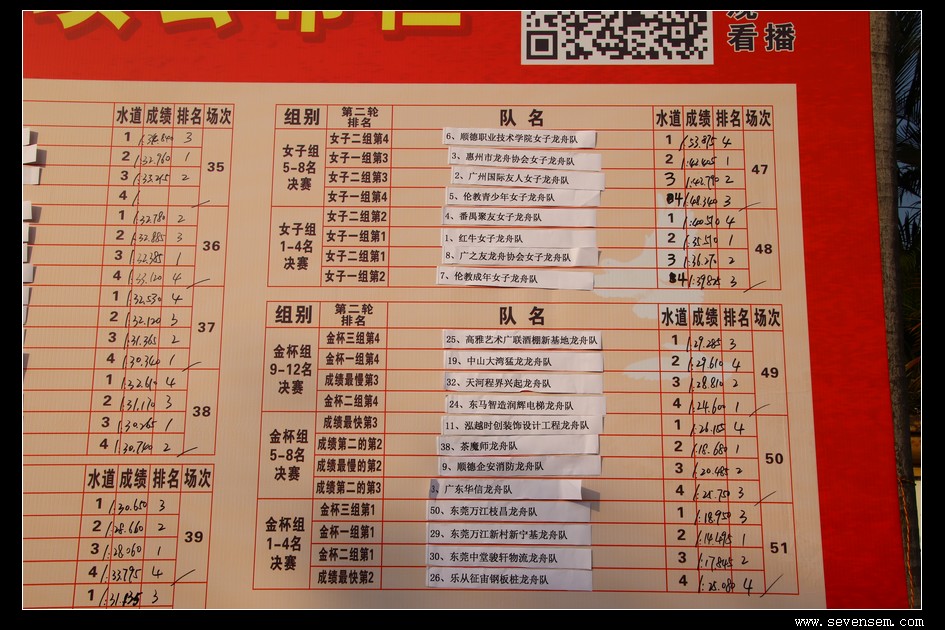 观
看播
水道 成绩 排名 场次
1 3
2 1:32.960 1
3 1:33.245 2
4 /
35
1 1:32.780 2
2 1:32.885 3
3 1:32.385 1
4 1:33.120 4
36
1 1:32.530 4
2 1:32.120 3
3 1:31.365 2
4 1:30.340 1
37
1 1:32.610 4
2 1:31.170 3
3 1:30.265 1
4 1:30.740 2
38
水道 成绩 排名 场次
1 1:30.650 3
2 1:28.660 2
3 1:28.060 1
4 1:33.795 4
39
1 3
组别 第二轮排名 队名 水道 成绩 排名 场次
女子组
5-8名
决赛
女子二组第4 6、顺德职业技术学院女子龙舟队 1 1:53.875 4
女子一组第3 3、惠州市龙舟协会女子龙舟队 2 1:42.405 1
女子二组第3 2、广州国际友人女子龙舟队 3 1:42.790 2
女子一组第4 5、伦教青少年女子龙舟队 4 1:48.340 3
47
女子组
1-4名
决赛
女子二组第2 4、番禺聚友女子龙舟队 1 1:40.510 4
女子一组第1 1、红牛女子龙舟队 2 1:35.510 1
女子二组第1 8、广之友龙舟协会女子龙舟队 3 1:36.270 2
女子一组第2 7、伦教成年女子龙舟队 4 1:39.825 3
48
组别 第二轮排名 队名 水道 成绩 排名 场次
金杯组
9-12名
决赛
金杯三组第4 25、高雅艺术广联酒棚新基地龙舟队 1 1:29.285 3
金杯一组第4 19、中山大湾猛龙龙舟队 2 1:29.610 4
成绩最慢第3 32、天河程界兴起龙舟队 3 1:28.810 2
金杯二组第4 24、东马智造润辉电梯龙舟队 4 1:24.600 1
49
金杯组
5-8名
决赛
成绩最快第3 11、泓越时创装饰设计工程龙舟队 1 1:26.165 4
成绩第二的第2 38、茶魔师龙舟队 2 1:18.680 1
成绩最慢的第2 9、顺德企安消防龙舟队 3 1:20.485 2
成绩第二的第3 3、广东华信龙舟队 4 1:25.750 3
50
金杯组
1-4名
决赛
金杯三组第1 50、东莞万江枝昌龙舟队 1 1:18.950 3
金杯一组第1 29、东莞万江新村新宁基龙舟队 2 1:14.495 1
金杯二组第1 30、东莞中堂骏轩物流龙舟队 3 1:17.845 2
成绩最快第2 26、乐从征宙钢板桩龙舟队 4 1:25.080 4
51
www.sevensem.com